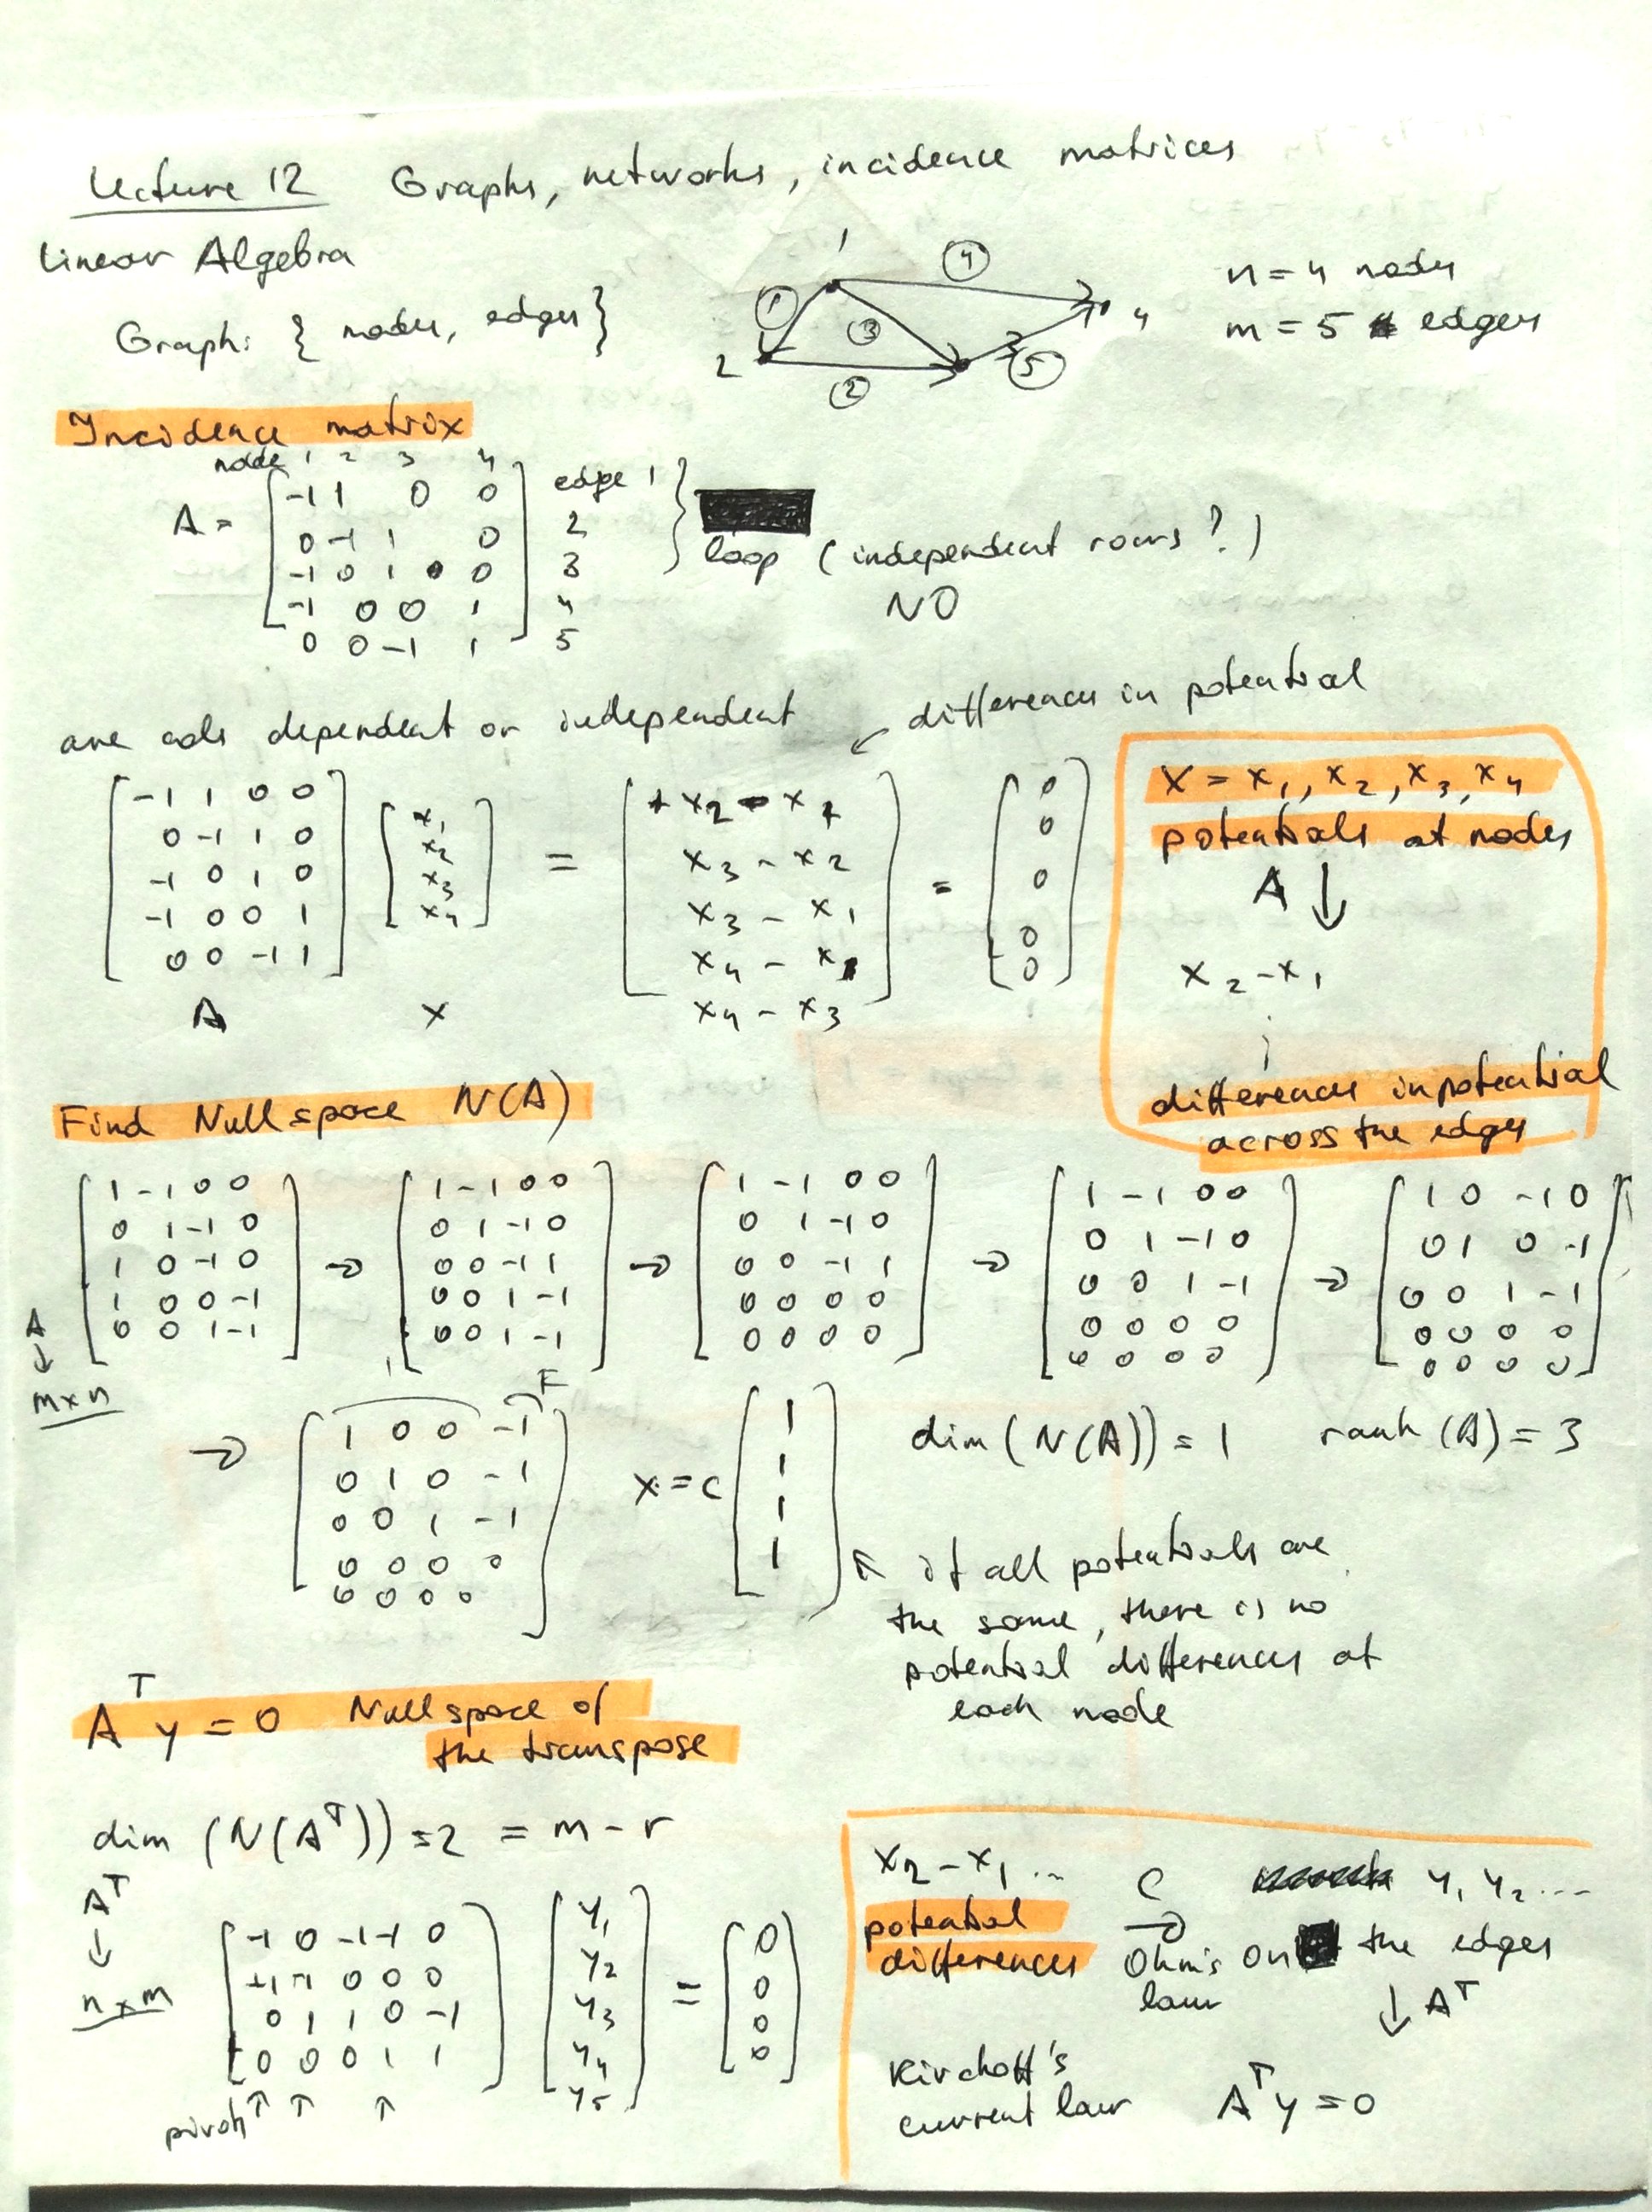 Lecture 12 Graphs, networks, incidence matrices
Linear Algebra
Graph: { nodes, edges }
1 2 4
① ② ③ ④ ⑤
n = 4 nodes
m = 5 edges
Incidence matrix
node 1 2 3 4
A =
-1 1 0 0 edge 1
0 -1 1 0 2
-1 0 1 0 3
-1 0 0 1 4
0 0 -1 1 5
loop (independent rows?)
NO
are cols dependent or independent
↙ differences in potential
-1 1 0 0
0 -1 1 0
-1 0 1 0
-1 0 0 1
0 0 -1 1
A
x1
x2
x3
x4
X
=
+ x2 - x1
x3 - x2
x3 - x1
x4 - x1
x4 - x3
=
0
0
0
0
0
X = x1, x2, x3, x4
potentials at nodes
A ↓
x2 - x1
⋮
differences in potential
across the edges
Find Nullspace N(A)
A
↓
m x n
1 -1 0 0
0 1 -1 0
1 0 -1 0
1 0 0 -1
0 0 1 -1
→
1 -1 0 0
0 1 -1 0
0 0 -1 1
0 0 1 -1
0 0 1 -1
→
1 -1 0 0
0 1 -1 0
0 0 -1 1
0 0 0 0
0 0 0 0
→
1 -1 0 0
0 1 -1 0
0 0 1 -1
0 0 0 0
0 0 0 0
→
1 0 -1 0
0 1 0 -1
0 0 1 -1
0 0 0 0
0 0 0 0
→
F
1 0 0 -1
0 1 0 -1
0 0 1 -1
0 0 0 0
0 0 0 0
x = c
1
1
1
1
dim (N(A)) = 1 rank (A) = 3
↖ if all potentials are
the same, there is no
potential differences at
each node
A^T y = 0 Nullspace of
the transpose
dim (N(A^T)) = 2 = m - r
A^T
↓
n x m
-1 0 -1 -1 0
+1 -1 0 0 0
0 1 1 0 -1
0 0 0 1 1
pivots ↑ ↑ ↑
y1
y2
y3
y4
y5
=
0
0
0
0
x2 - x1 ... C y1 y2 ...
potential → on the edges
differences Ohm's law
↓ A^T
Kirchoff's
current law A^T y = 0